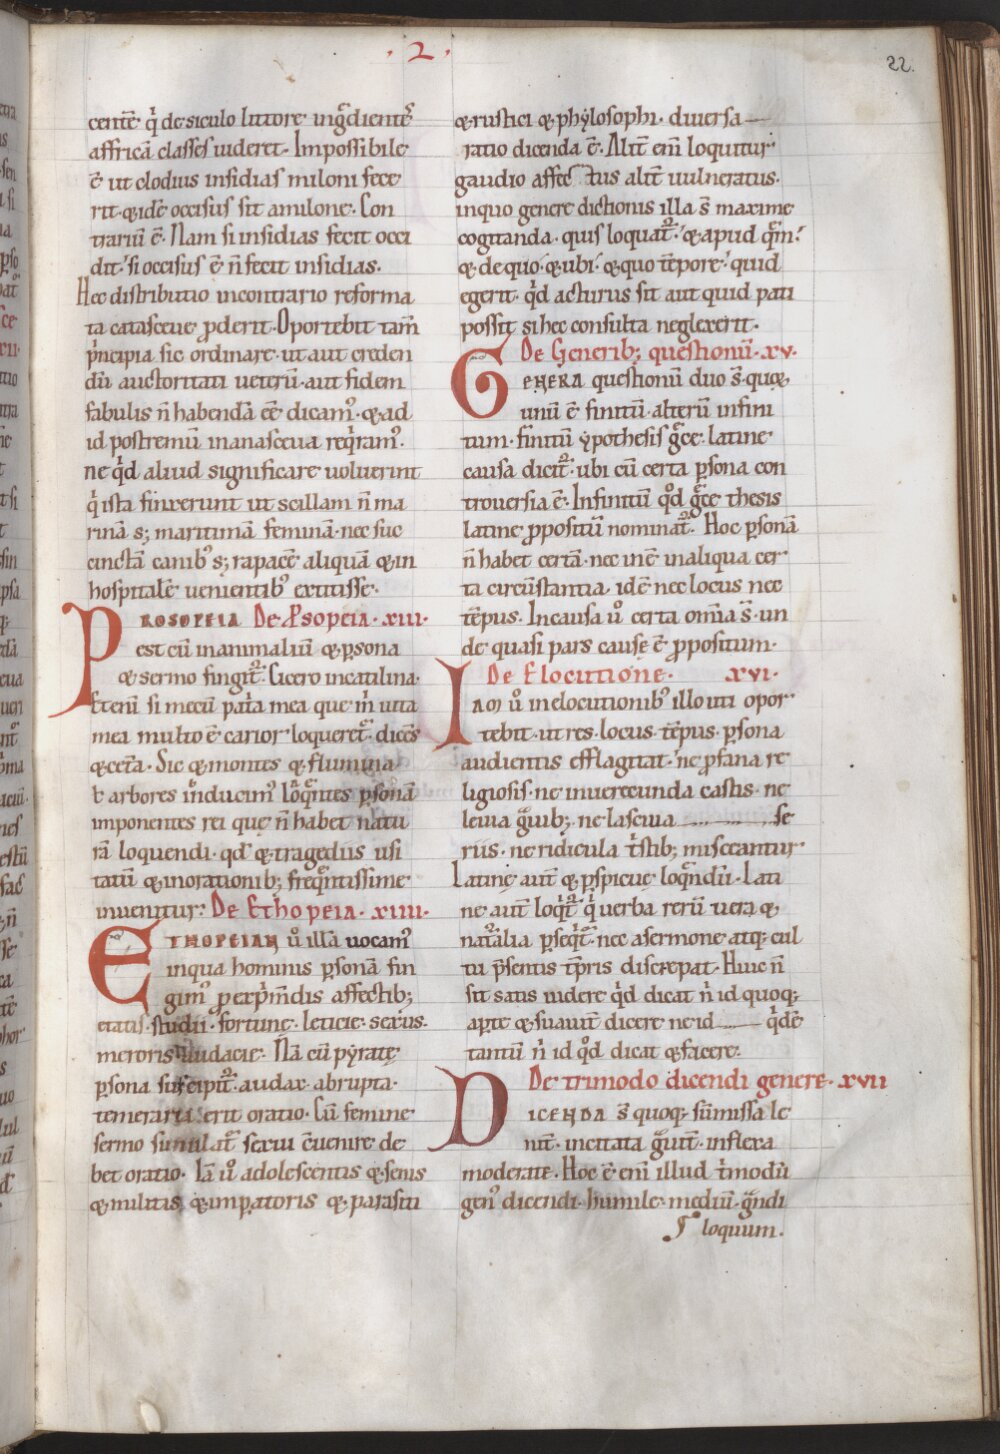 · 2 ·
22.
centē q̇ de siculo littore ingͣdientē
affricā classes uideret. Impossibile
ē ut clodius insidias miloni fece
rit. & idē occisus sit amilone. Con
trariū ē. Nam si insidias fecit occi
dit. si occisus ē n̄ fecit insidias.
Hec distributio incontrario reforma
ta catasceue ꝓderit. Oportebit tam̄
pͥncipia sic ordinare. ut aut creden
dū auctoritati ueterū. aut fidem
fabulis n̄ habendā eē dicamꝰ. & ad
id postremū inanasceua reqͥramꝰ.
ne qͥd aliud significare uoluerint
qͥ ista finxerunt ut scillam n̄ ma
rinā s; maritimā feminā. nec suc
cinctā canibꝰ s; rapacē aliquā & in
hospitalē uenientibꝰ extitisse.
PROSOPEIA De Psopeia. xiii.
est cū inanimaliū & ꝑsona
& sermo fingit᷑. Cicero incatilina.
Etenī si mecū patͥa mea que m̄ uita
mea multo ē carior loqueret᷑. dicēs
& cetͣa. Sic & montes & flumina
ł arbores inducimꝰ loqͣntes ꝑsonā
imponentes rei que n̄ habet natu
rā loquendi. qd̄ & tragediis usi
tatū & inorationib; freqͣntissime
inuenitur. De Ethopeia. xiiii.
ETHOPEIAM u̇ illā uocamꝰ
inqua hominis ꝑsonā fin
gimꝰ ꝓ exp̄mēdis affectib;
etatis. studii. fortune. leticie. sexus.
meroris. audacie. Nā cū pẏratę
ꝑsona suscipit᷑. audax. abrupta.
temeraria erit oratio. Cū femine
sermo simulat᷑ sexui cūenire de
bet oratio. Iā u̇ adolescentis & senis
& militis & imꝑatoris & parasiti
& rustici & phẏlosophi. diuersa
ratio dicenda ē. Alit̄ enī loquitur
gaudio affec tus alit̄ uulneratus.
inquo genere dictionis illa s̄ maxime
cogitanda. quis loquat᷑. & apud qͣm.
& de quo. & ubi. & quo tēpore. quid
egerit. qͥd acturus sit aut quid pati
possit si hec consulta neglexerit.
De Generib; questionū. xv.
GENERA questionū duo s̄. quoꝝ
unū ē finitū. alterū infini
tum. finitū ẏpothesis gͣce. latine
causa dicit᷑. ubi cū certa ꝑsona con
trouersia ē. Infinitū qͦd gͣce thesis
latine ꝓpositū nominat᷑. Hoc ꝑsonā
n̄ habet certā. nec inē inaliqua cer
ta circūstantia. idē nec locus nec
tēpus. Incausa u̇ certa omīa s̄. un
de quasi pars cause ē ꝓpositum.
De Elocutione. xvi.
IAM u̇ inelocutionibꝰ illo uti opor
tebit. ut res. locus. tēpus. ꝑsona
audientis efflagitat. ne ꝓfana re
ligiosis. ne inuerecunda castis. ne
leuia gͣuib; ne lasciua se
riis. ne ridicula tͥstib; misceantur
Latine aut̄ & ꝑspicue loqͣndū. Lati
ne aut̄ loqͥt᷑ qͥ uerba rerū uera &
natͣalia ꝑseqͥt᷑. nec asermone atq; cul
tu p̄sentis tēpris discrepat. Huic n̄
sit satis uidere qͥd dicat nͥ id quoq;
aꝑte & suauit̄ dicere. ne id qͥdē
tantū nͥ id qͦd dicat & facere.
De trimodo dicendi genere. xvii
DICENDA s̄ quoq; sūmissa le
nit̄. incitata gͣuit̄. inflexa
moderate. Hoc ē enī illud tͥmodū
genꝰ dicendi. humile. mediū. gͣndi
loquum.